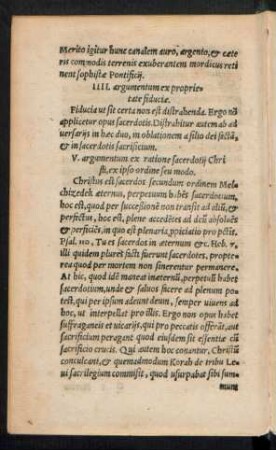 Merito igitur hunc canalem auro, argento, & cæte
ris commodis terrenis exuberantem mordicus reti
nent sophistæ Pontificij.
IIII. argumentum ex proprie
tate fiduciæ.
Fiducia ut sit certa non est distrahenda. Ergo nō
applicetur opus sacerdotis. Distrahitur autem ab ad
uersarijs in hæc duo, in oblationem a filio dei factā,
& in sacerdotis sacrificium.
V. argumentum ex ratione sacerdotij Chri
sti, ex ipso ordine seu modo.
Christus est sacerdos secundum ordinem Mel
chizedek æternus, perpetuum habēs sacerdotium,
hoc est, quod per successionē non transit ad aliū, &
perfectus, hoc est, plene accedētes ad deū absoluēs
& perficiēs, in quo est plenaria propiciatio pro pctis.
Psal. 110, Tu es sacerdos in æternum &c. Heb. 7,
illi quidem plures facti fuerunt sacerdotes, propte
rea quod per mortem non sinerentur permanere.
At hic, quod idē maneat in æternū, perpetuū habet
sacerdotium, unde & saluos facere ad plenum po-
test, qui per ipsum adeunt deum, semper uiuens ad
hoc, ut interpellat pro illis. Ergo non opus habet
suffraganeis et uicarijs, qui pro peccatis offerāt, aut
sacrificium peragant quod eiusdem sit essentiæ cū
sacrificio crucis. Qui autem hoc conantur, Christū
conculcant, & quemadmodum Korah de tribu Le
ui sacrilegium commisit, quod usurpabat sibi sum-
mum